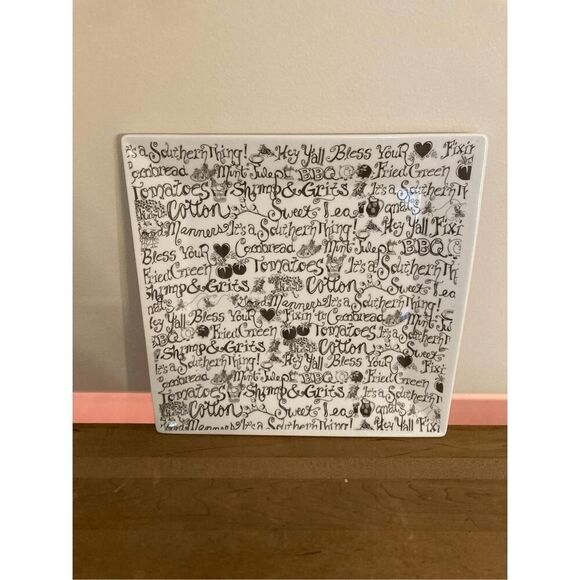 It's a Southern Thing! Hey Yall Bless Your Fixin
Cornbread Mint Julep BBQ Fried Green
Tomatoes Shrimp & Grits It's a Southern T
Cotton Sweet Tea gnats Hey Yall Fixi
Manners It's a Southern Thing! BBQ
Bless Your Cornbread Mint Julep
Fried Green Tomatoes It's a Southern Thi
Shrimp & Grits Cotton Sweet Tea
nats Good Manners It's a Southern Thing!
Hey Yall Bless Your Fixin' to Cornbread Mint Jul
BBQ Fried Green Tomatoes It's a Southern
Shrimp & Grits Cotton Sweet
It's a Southern Thing! Hey Yall Bless Your Fixi
Cornbread Mint Julep BBQ Fried Green
Tomatoes Shrimp & Grits It's a Southern T
Cotton Sweet Tea gnats
Good Manners It's a Southern Thing! Hey Yall Fixi